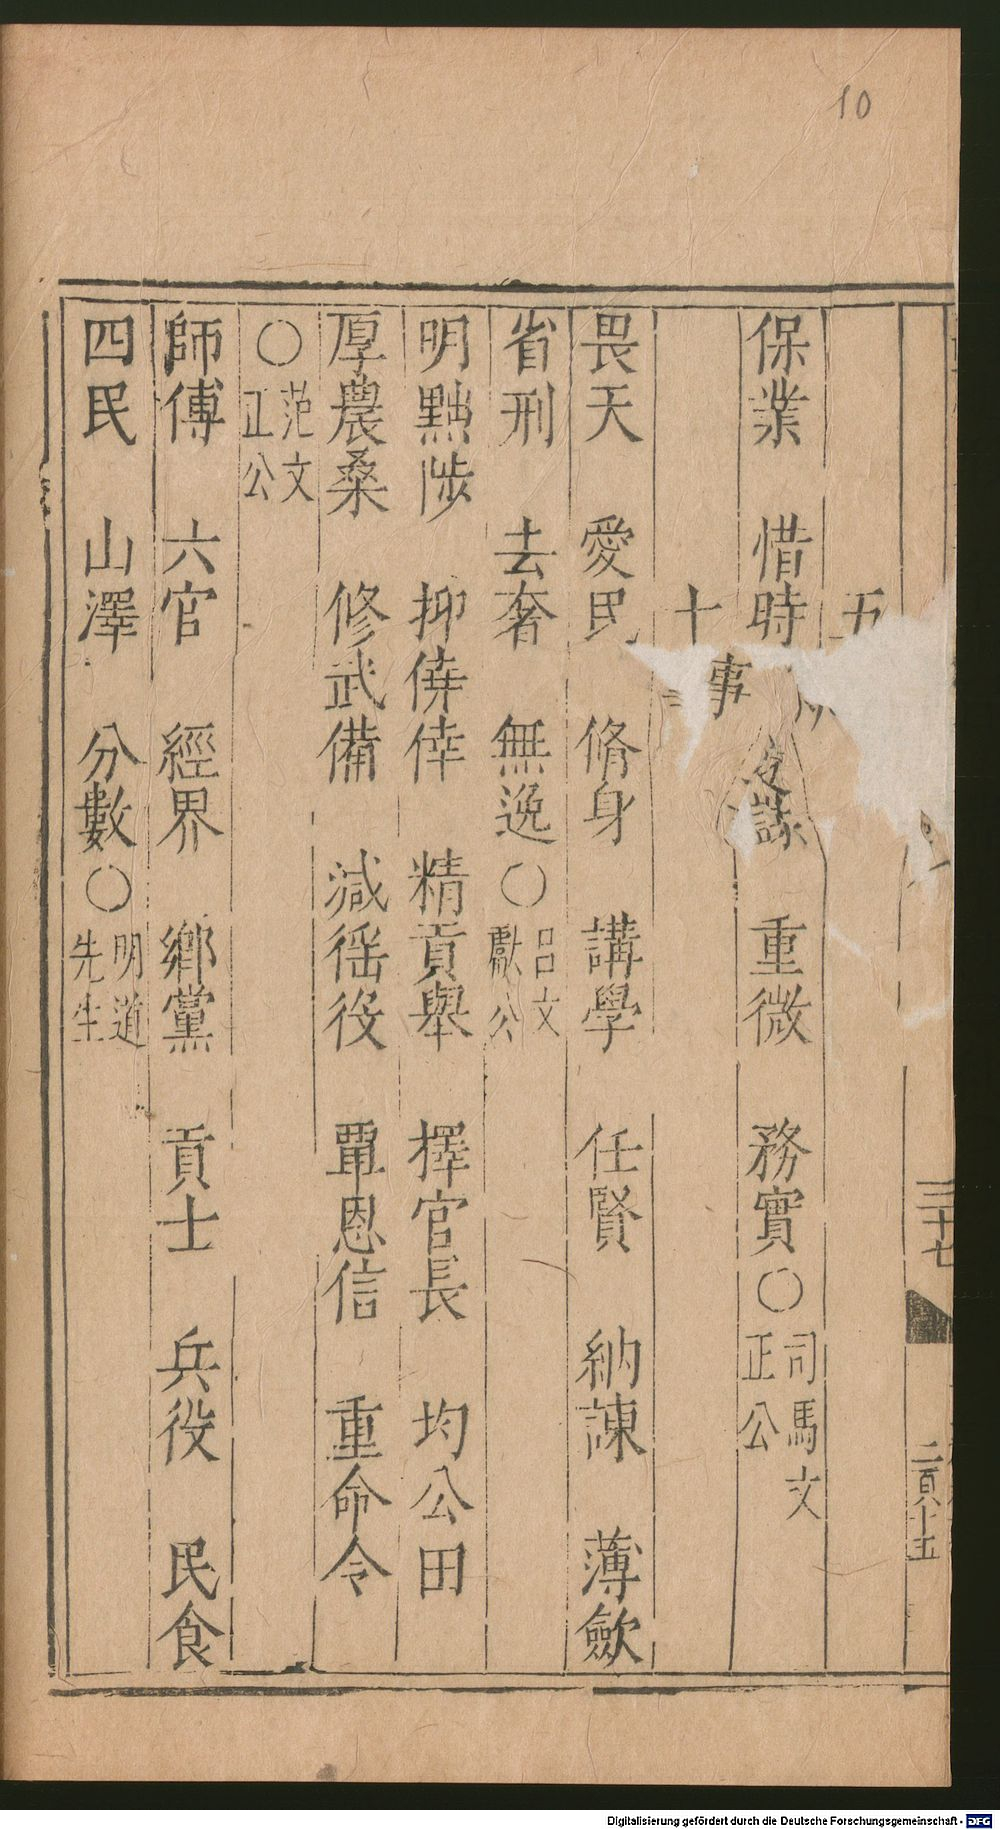 10
三十七
二百十五
五
保業　惜時　謀　重微　務實○司馬文正公
十事
畏天　愛民　脩身　講學　任賢　納諫　薄歛
省刑　去奢　無逸○吕文獻公
明黜陟　抑僥倖　精貢舉　擇官長　均公田
厚農桑　修武備　减徭役　覃恩信　重命令
○范文正公
師傅　六官　經界　鄉黨　貢士　兵役　民食
四民　山澤　分數○明道先生
Digitalisierung gefördert durch die Deutsche Forschungsgemeinschaft - DFG